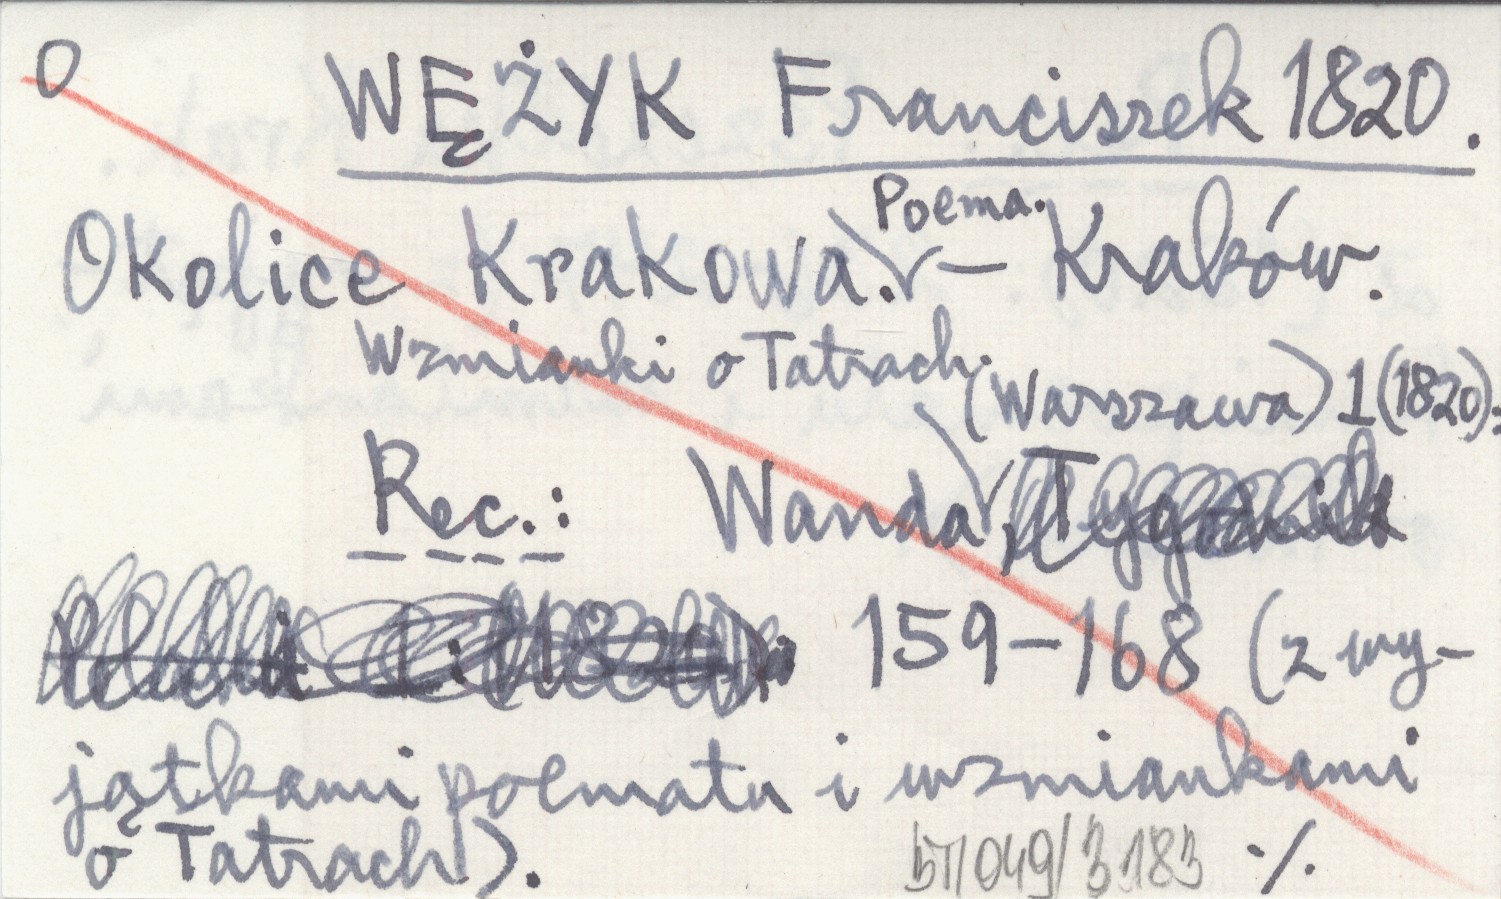 O WĘŻYK Franciszek 1820.
Poema.
Okolice Krakowa. — Kraków.
Wzmianki o Tatrach.
(Warszawa) 1 (1820):
Rec.: Wanda, Tygodnik
159-168 (z wy-
jątkami poematu i wzmiankami
o Tatrach).
BT/049/3183 ./.